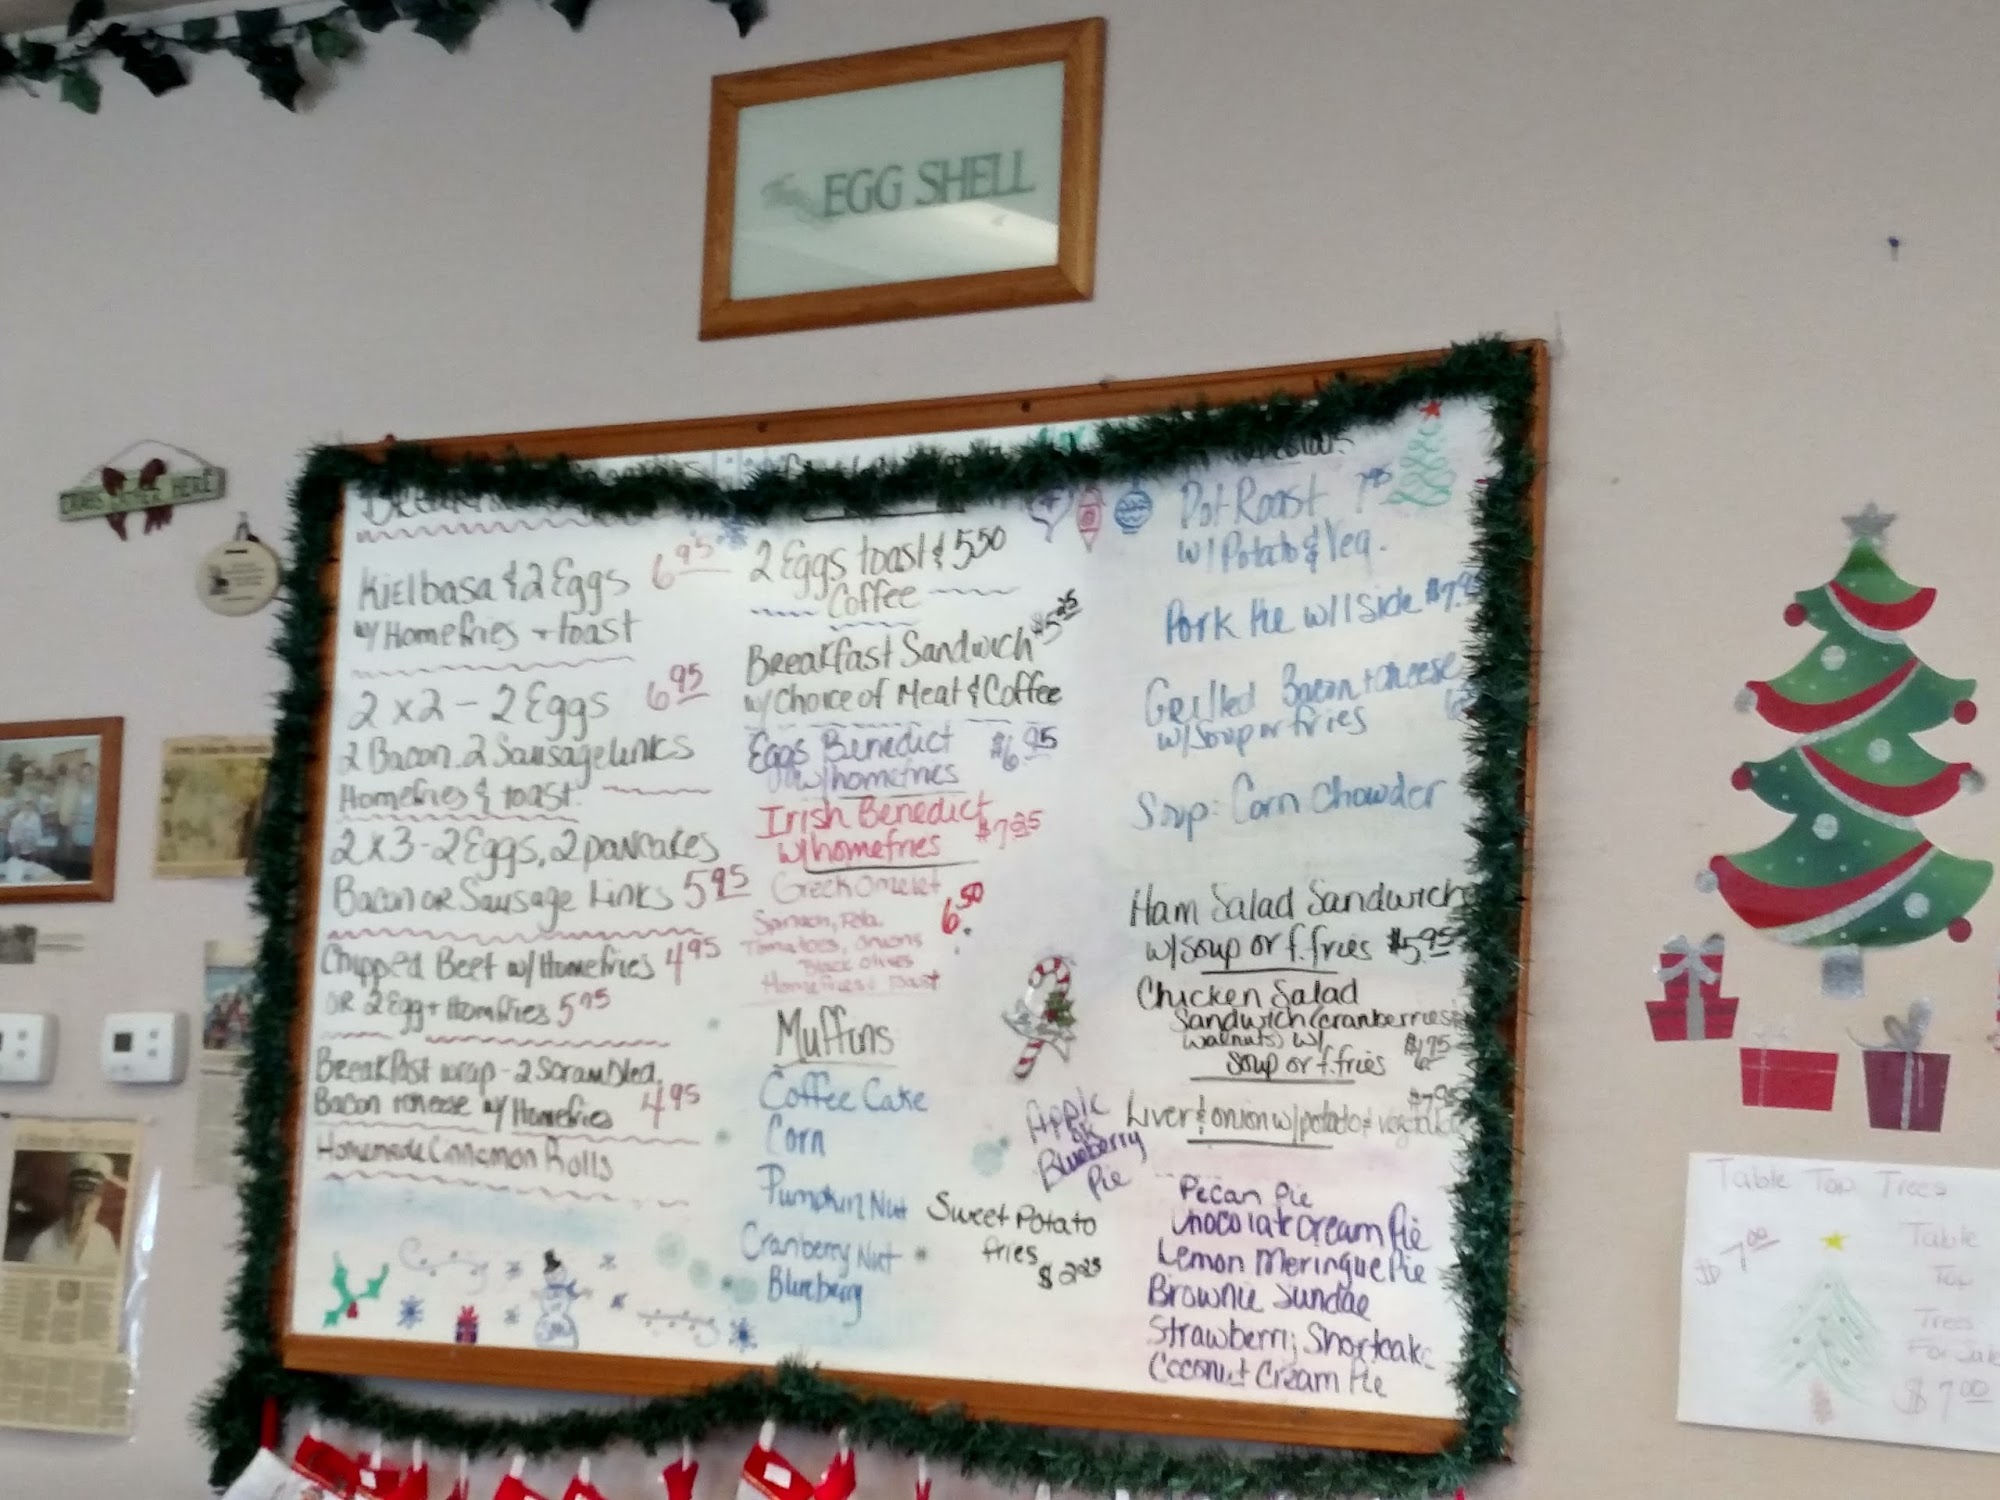 The EGG SHELL
Kielbasa & 2 Eggs 6 95
w/ Homefries + toast
2 x 2 - 2 Eggs 6 95
2 Bacon. 2 Sausage Links
Homefries & toast.
2 x 3 - 2 Eggs, 2 pancakes
Bacon or Sausage Links 5 95
Chipped Beef w/ Homefries 4 95
OR 2 Egg + Homfries 5 95
Breakfast wrap - 2 Scrambled,
Bacon + cheese w/ Homefries 4 95
Homemade Cinnamon Rolls
2 Eggs toast & 5.50
Coffee
Breakfast Sandwich $5.25
w/ Choice of Meat & Coffee
Eggs Benedict $6.95
w/ homefries
Irish Benedict $7.25
w/ homefries
Greek Omelet 6.50
Spinach, Feta
Tomatoes, Onions
Black Olives
Homefries + toast
Muffins
Coffee Cake
Corn
Pumpkin Nut
Cranberry Nut
Blueberry
Apple
OR
Blueberry
Pie
Sweet Potato
fries
$2.25
Pot Roast 7 95
w/ Potato & Veg.
Pork Pie w/ 1 Side $7.9
Grilled Bacon + cheese
w/ Soup or fries
Soup: Corn Chowder
Ham Salad Sandwich
w/ Soup or f. fries $5.95
Chicken Salad
Sandwich (cranberries +
walnuts) w/
Soup or f. fries $6.75
$7.95
Liver & onion w/ potato &
Pecan Pie
Chocolate Cream Pie
Lemon Meringue Pie
Brownie Sundae
Strawberry Shortcak
Coconut Cream Pie
Table Top Trees
$7.00
Table
Top
Trees
For Sale
$7.00